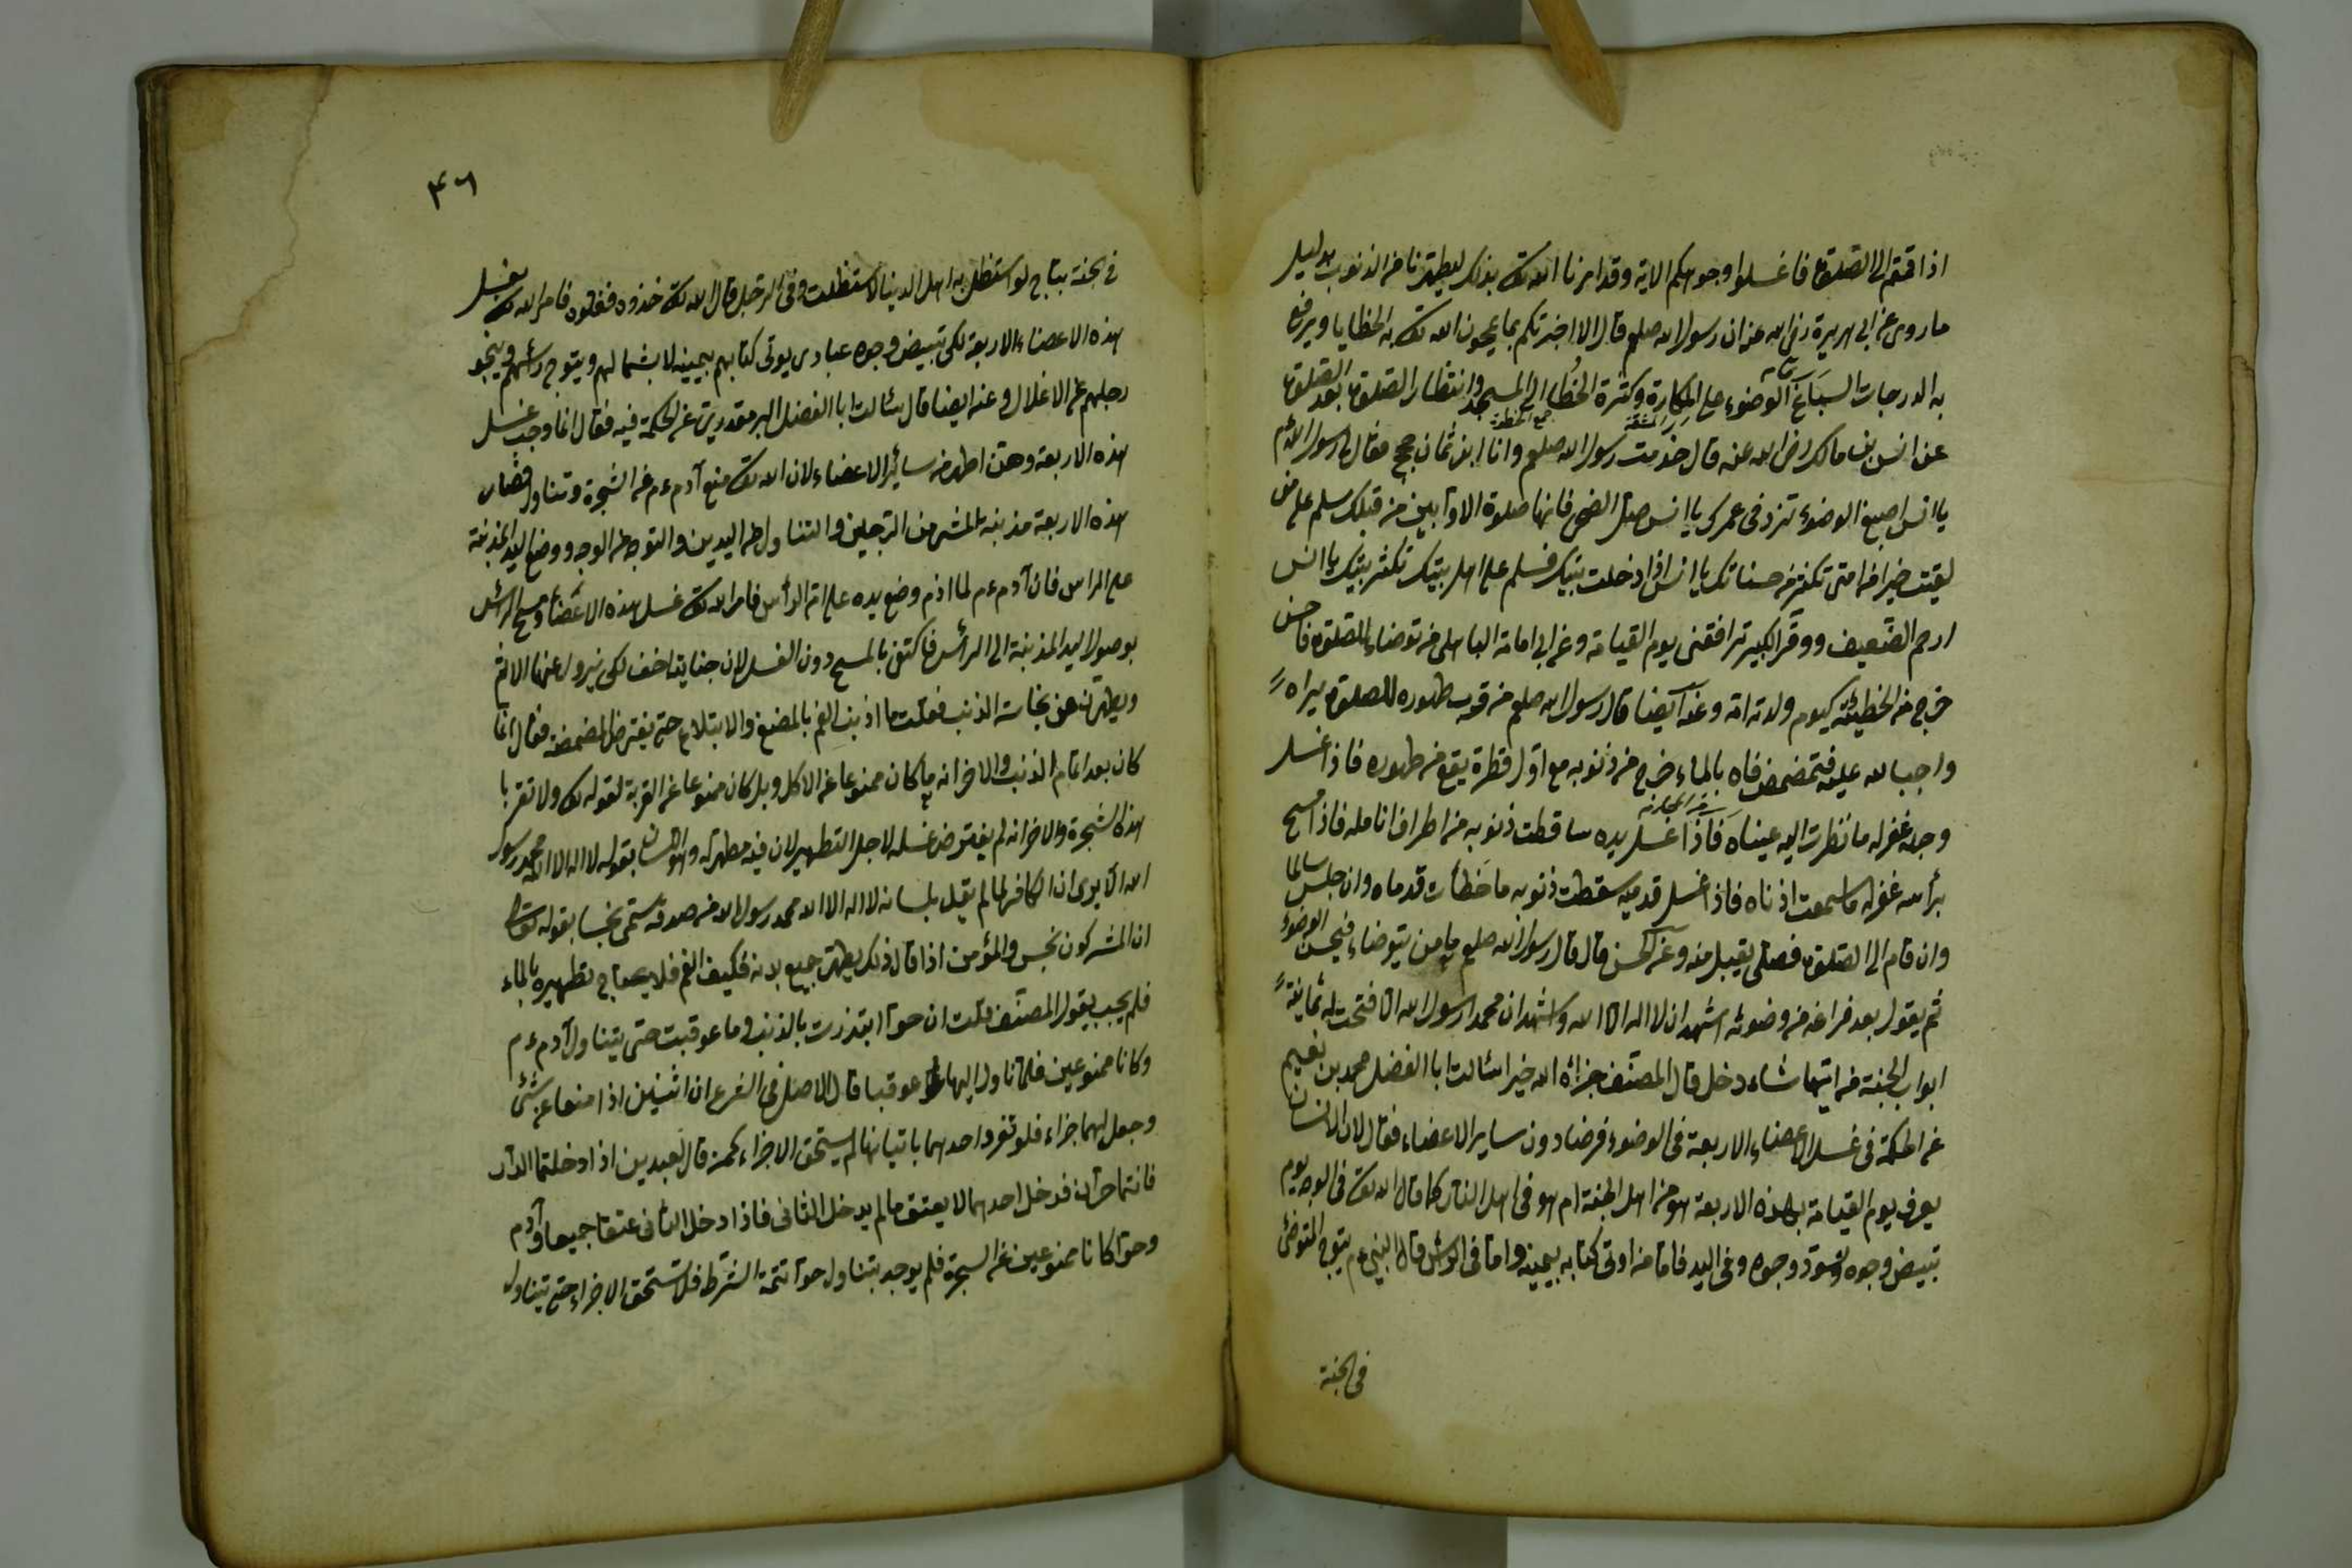 اذا قمتم الى الصلوة فاغسلوا وجوهكم الاية وقد امرنا الله تعالى بذلك ليطهرنا من الذنوب بدليل
ما روى عن ابى هريرة رضى الله عنه ان رسول الله صلعم قال الا اخبركم بما يمحون الله تعالى به الخطايا ويرفع
به الدرجات اسباغ الوضوء على المكاره وكثرة الخطا الى المسجد وانتظار الصلوة بعد الصلوة
المشقة جمع الخطوة
عن انس بن مالك رضى الله عنه قال خدمت رسول الله صلعم وانا ابن ثمان حجج فقال لى رسول الله عم
يا انس اصبغ الوضوء تزد فى عمرك يا انس صل الضحى فانها صلوة الاوابين من قبلك سلم على من
لقيت خيرا من امتى تكثر من حسناتك يا انس اذا دخلت بيتك فسلم على اهل بيتك تكثر بيتك يا انس
ارحم الضعيف ووقر الكبير ترافقنى يوم القيامة وعن ابى امامة الباهلى من توضاء للصلوة فاحسن
خرج من الخطيئة كيوم ولدته امه وعنه ايضا قال رسول الله صلعم من قرب طهوره للصلوة يراه
واجبا لله عليه فتمضمض فاه بالماء خرج من ذنوبه مع اول قطرة يقع من طهوره فاذا غسل
وجهه غفر له ما نظرت اليه عيناه فاذا غسل يده ساقطت ذنوبه من اطراف انامله فاذا مسح
برأسه غفر له ما سمعت اذناه فاذا غسل قدميه سقطت ذنوبه ما خطأت قدماه وان جلس سالما
وان قام الى الصلوة فصلى يقبل منه وعن الحسن قال قال رسول الله صلعم ما من يتوضاء فيحسن الوضوء
ثم يقول بعد فراغه من وضوئه اشهد ان لا اله الا الله واشهد ان محمدا رسول الله الا فتحت له ثمانية
ابواب الجنة من ايتها شاء دخل قال المصنف جزاه الله خيرا سئالت ابا الفضل محمد بن نعيم
عن الحكمة فى غسل الاعضاء الاربعة فى الوضوء فرضا دون ساير الاعضاء فقال لان الانسان
يعرف يوم القيامة بهذه الاربعة هو من اهل الجنة ام هو فى اهل النار كما قال الله تعالى فى الوجه يوم
تبيض وجوه وتسود وجوه وفى اليد فاما من اوتى كتابه بيمينه واما فى الرأس قال النبى عم يتوج المتوضئ
فى الجنة
٤٦
فى الجنة بتاج لو استظل به اهل الدنيا لاستظلت وفى الرجل قال الله تعالى خذوه فغلوه فامر الله تعالى بغسل
هذه الاعضاء الاربعة لكى تبيض وجوه عبادى يوتى كتابهم بيمينه لا بشمالهم ويتوج رأسهم وينجو
رجلهم عن الاغلال وعنه ايضا قال سئالت ابا الفضل عن الحكمة فيه فقال انما وجب غسل
هذه الاربعة وهن اطهر من سائر الاعضاء لان الله تعالى منع آدم عم عن الشجرة وتناول فصار
هذه الاربعة مذنبة المشى من الرجلين والتناول من اليدين والتوجه من الوجه ووضع اليد المذنبة
على الراس فان آدم عم لما اذم وضع يده على ام الرأس فامر الله تعالى غسل هذه الاعضاء ومسح الرأس
بوصول اليد المذنبة الى الرأس فاكتفى بالمسح دون الغسل لان جنايتها اخف لكى يزول عنها الاثم
ويطهرن من نجاسة الذنب فقلت ما اذنب الفم بالمضغ والابتلاع حتى يفترض المضمضة فقال انما
كان بعد اتمام الذنب والاخر انه ما كان ممنوعا عن الاكل وبل كان ممنوعا عن القربة لقوله تعالى ولا تقربا
هذه الشجرة والاخر انه لم يفترض غسله لاجل التطهير لان فيه مطهرة وهو اللسان بقوله لا اله الا الله محمد رسول
الله الا يرى ان الكافر لما لم يقل بلسانه لا اله الا الله محمد رسول الله من صدقه سمى نجسا بقوله تعالى
ان المشركون نجس والمؤمن اذا قال ذلك يطهر جميع بدنه فكيف الفم فلا يحتاج تطهيره بالماء
فلم يجب بقول المصنف قلت ان حوا ابتذرت بالذنب وما عوقبت حتى يتناول آدم عم
وكانا ممنوعين فلما ناول ايهاها عوقبا قال الاصل فى الشرع ان اثنين اذا منعا عن شئ
وجعل لهما جزاء فلو تفرد احدهما باتيانها لم يستحق الاجزاء كمن قال لعبدين اذا دخلتما الدار
فانتما حران فدخل احدهما لا يعتق مالم يدخل الثانى فاذا دخل الثانى عتقا جميعا وآدم
وحوا كانا ممنوعين عن الشجرة فلم يوجد بتناول حوا تتمة الشرط فلا تستحق الاجزاء حتى تناول